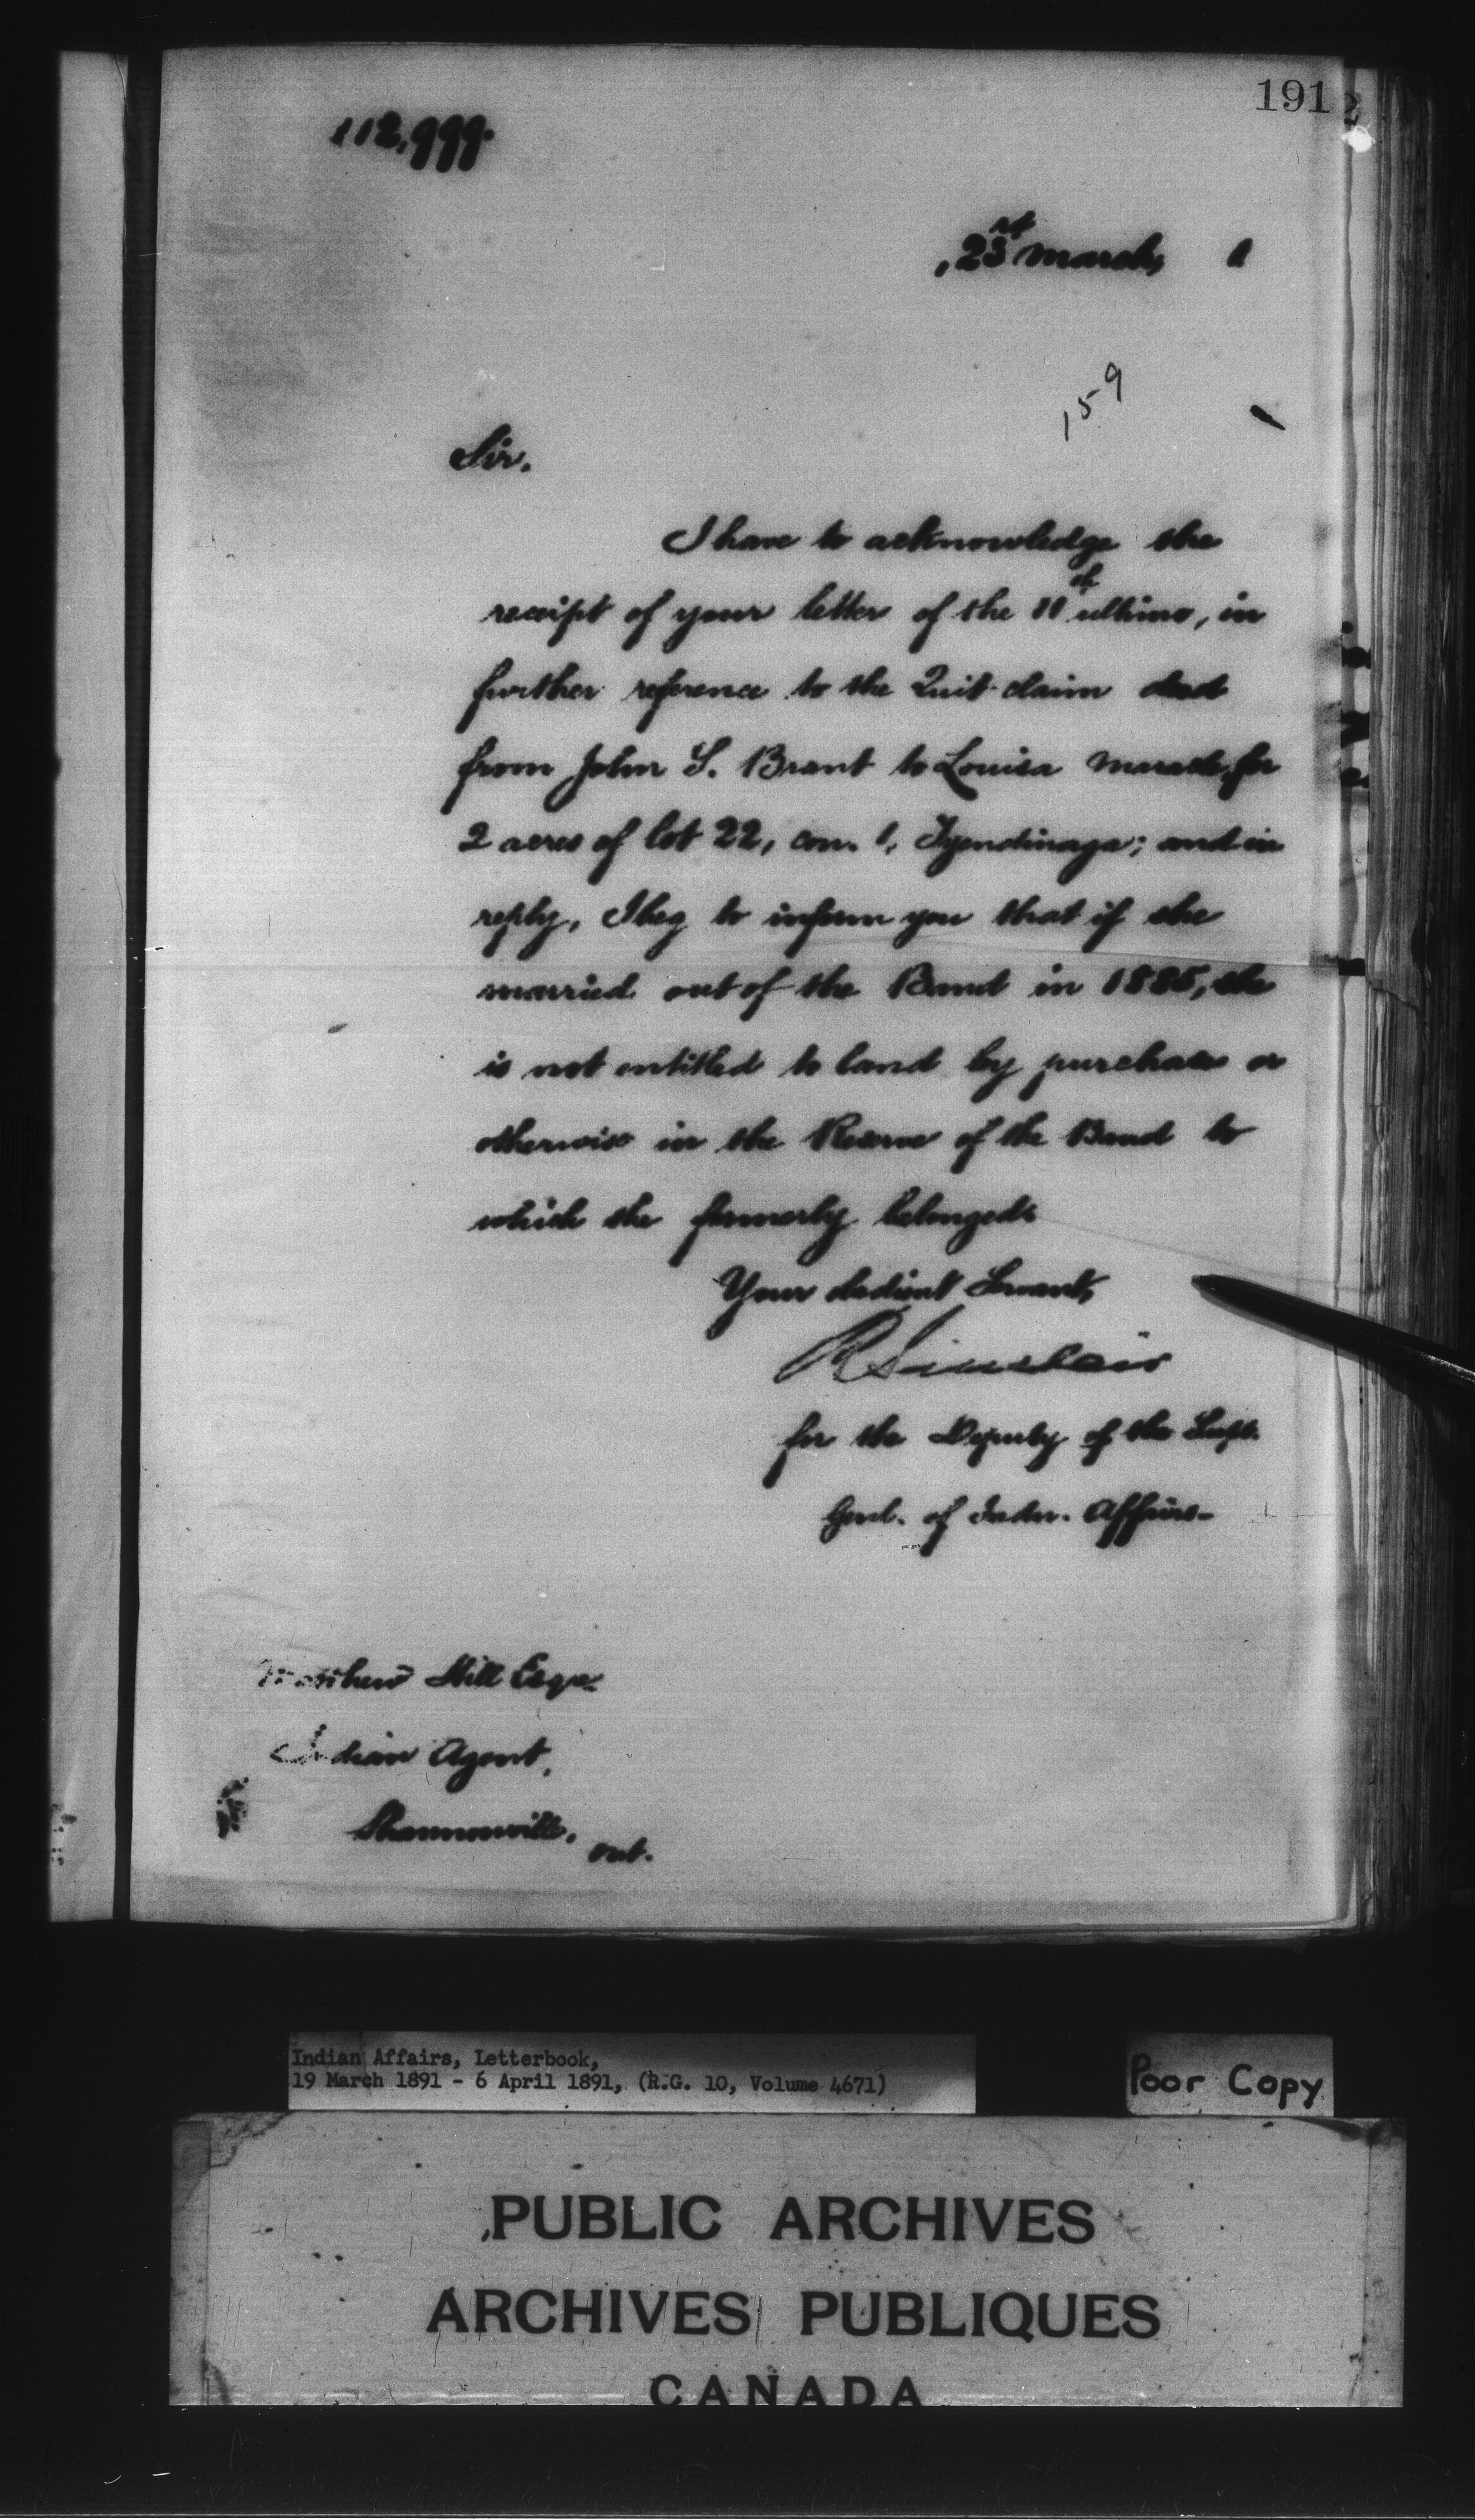 191
112,999.
23rd March, 1
159
Sir.
I have to acknowledge the
receipt of your letter of the 11th ultimo, in
further reference to the Quit-claim deed
from John S. Brant to Louisa Maracle, for
2 acres of lot 22, con. 1, Tyendinaga; and in
reply, I beg to inform you that if she
married out of the Band in 1885, she
is not entitled to land by purchase or
otherwise in the Reserve of the Band to
which she formerly belonged.
Your obedient Servant,
R Sinclair
for the Deputy of the Supt.
Genl. of Indn. Affairs-
Matthew Hill Esqre.
Indian Agent,
Shannonville,
Ont.
Indian Affairs, Letterbook,
19 March 1891 - 6 April 1891, (R.G. 10, Volume 4671)
Poor Copy
PUBLIC ARCHIVES
ARCHIVES PUBLIQUES
CANADA